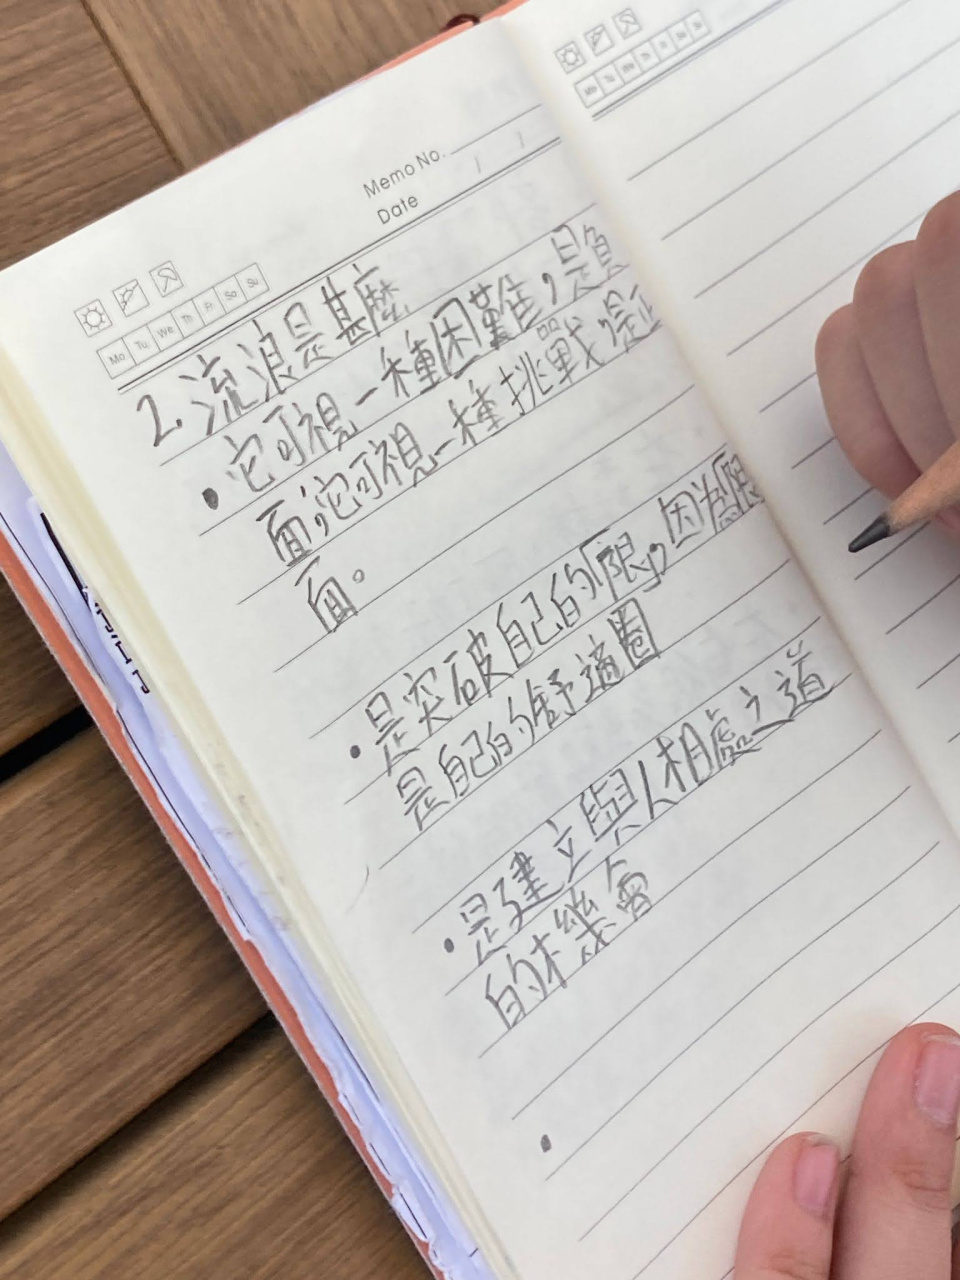 Memo No.
Date / /
Mo Tu We Th Fr Sa Su
Mo Tu We Th Fr Sa Su
2. 流浪是甚麼
• 它可視一種困難，是負
面，它可視一種挑戰，是正
面。
• 是突破自己的限，因為限
是自己的舒適圈
• 是建立與人相處之道
的機會
•